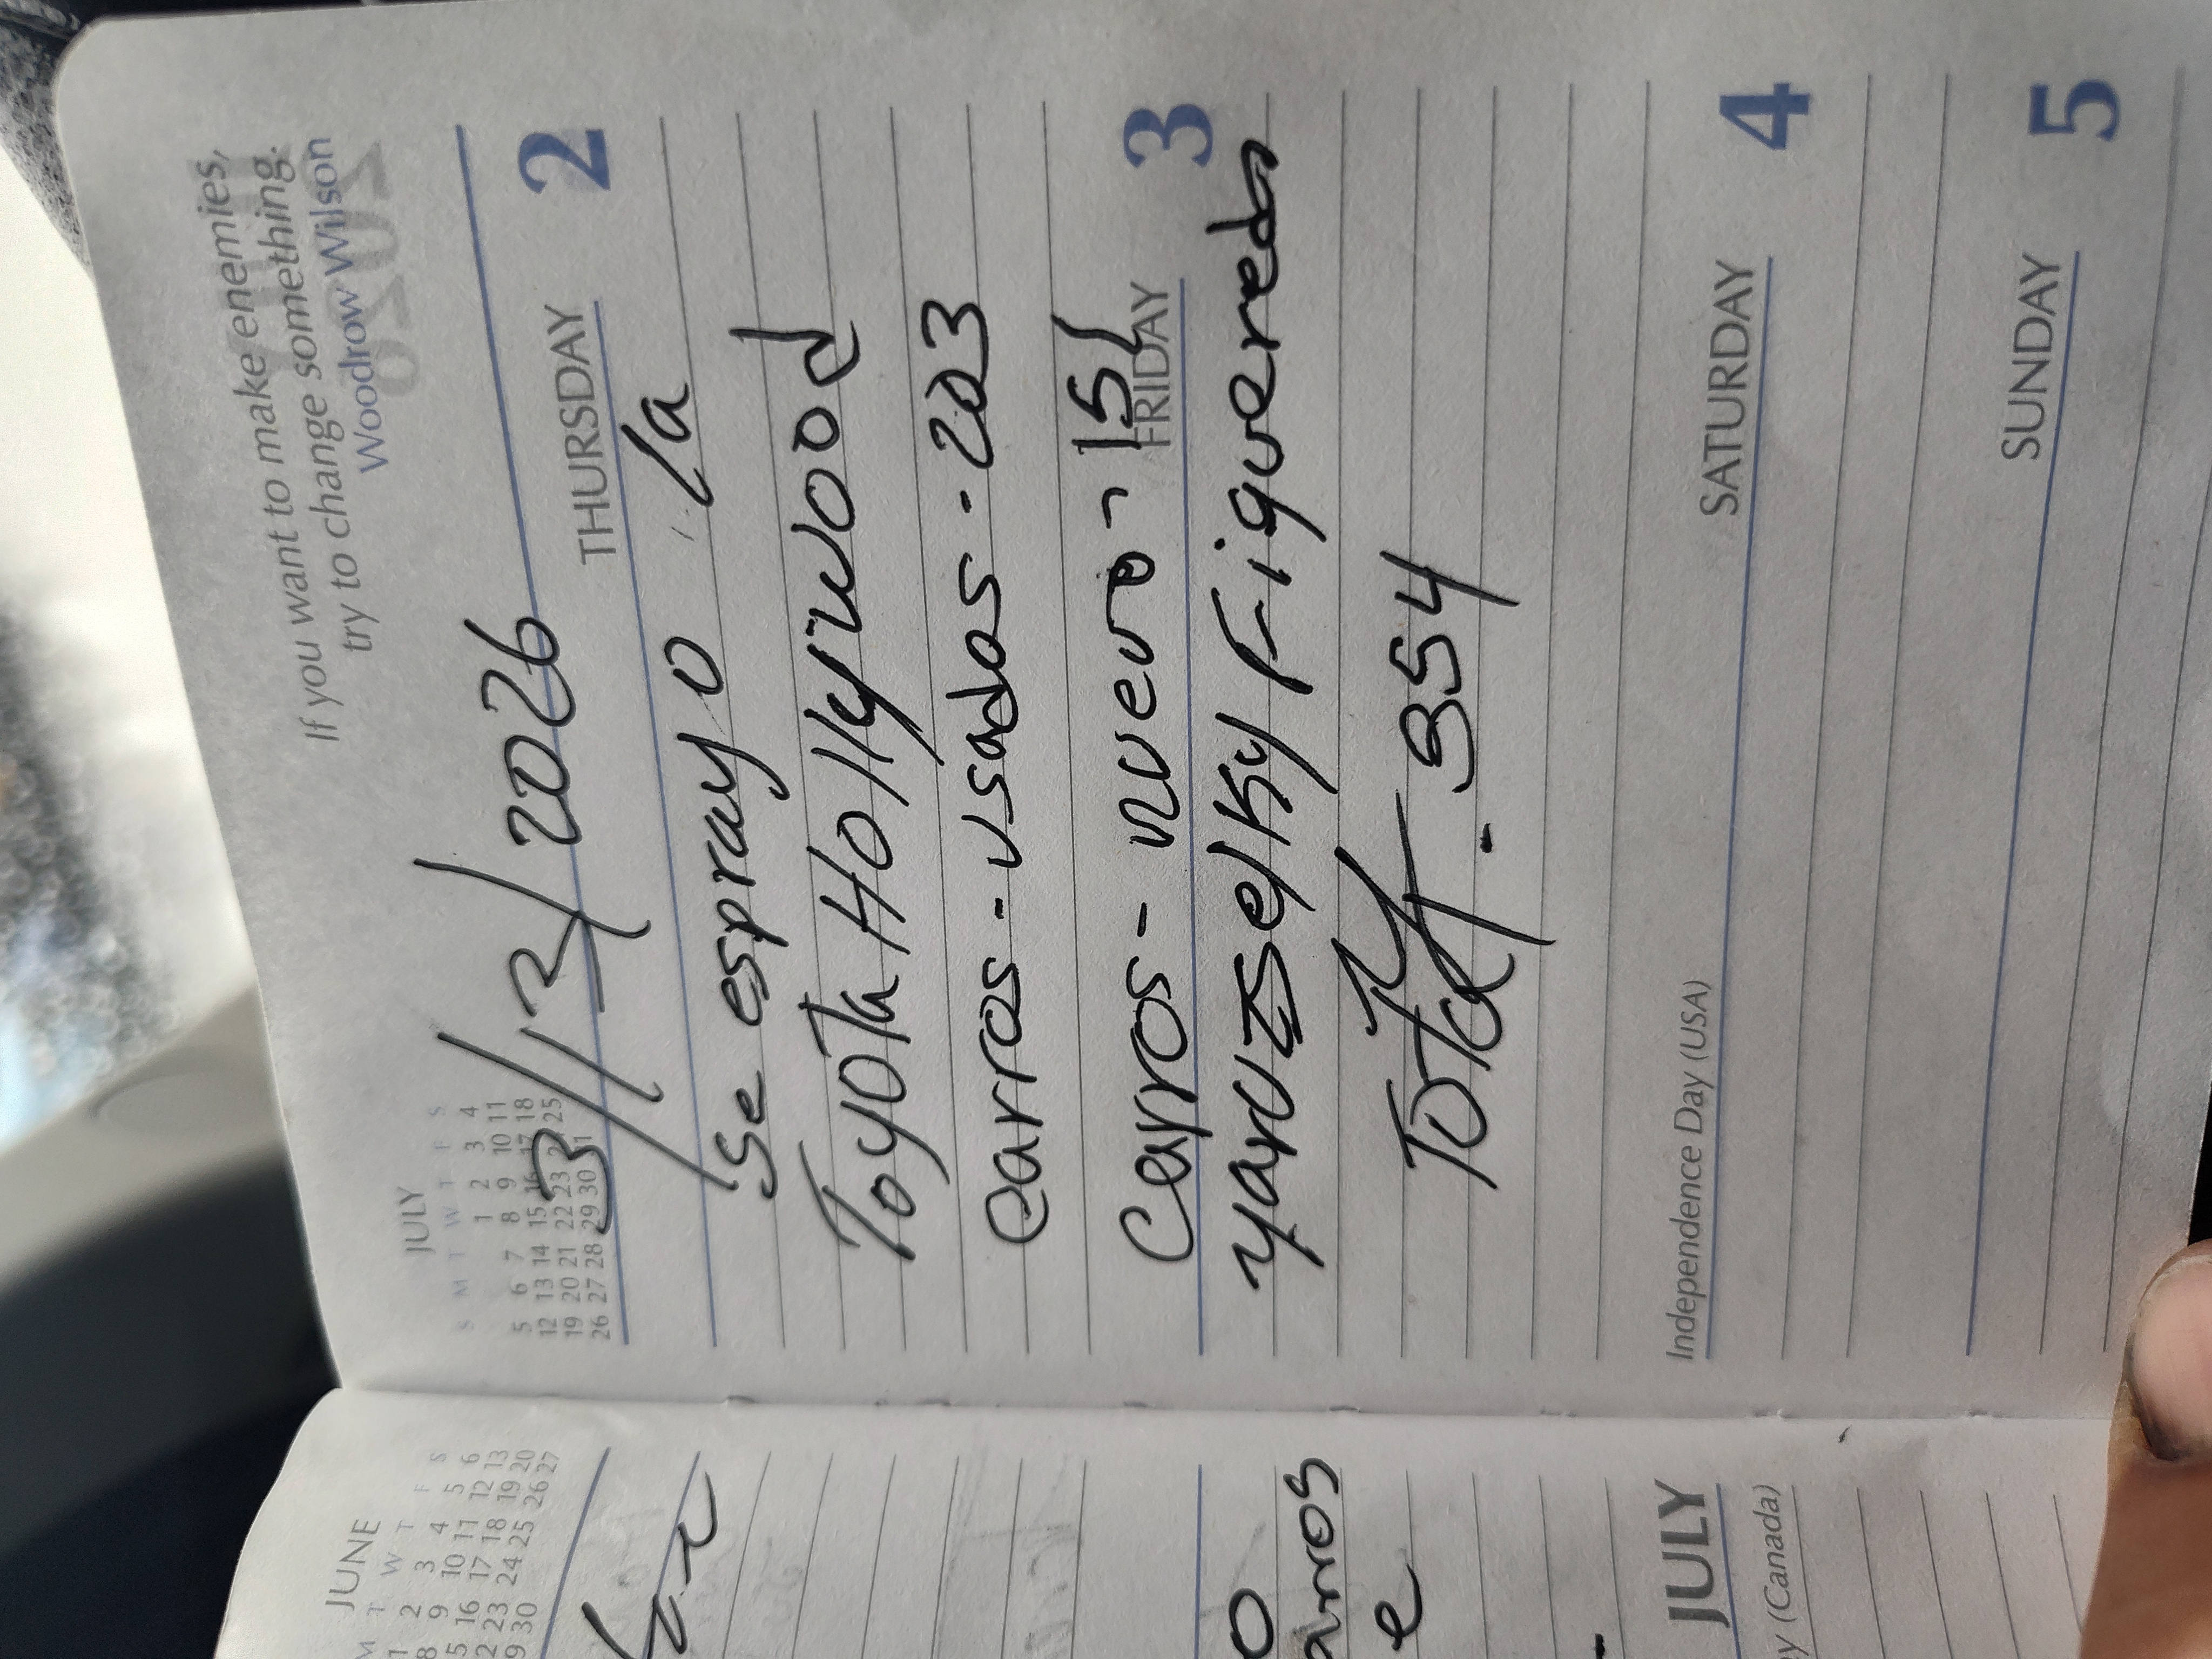 If you want to make enemies,
try to change something.
Woodrow Wilson
JULY
S M T W T F S
1 2 3 4
5 6 7 8 9 10 11
12 13 14 15 16 17 18
19 20 21 22 23 25
26 27 28 29 30 31
3/13/2026
THURSDAY 2
Se esprayo la
Toyota Hollywood
carros - usados - 203
Carros - nuevo - 151
FRIDAY 3
yaruzselky Figuereda
Total - 354
Independence Day (USA)
SATURDAY 4
SUNDAY 5
JUNE
M T W T F S
1 2 3 4 5 6
8 9 10 11 12 13
5 16 17 18 19 20
2 23 24 25 26 27
9 30
o
arros
e
JULY
y (Canada)